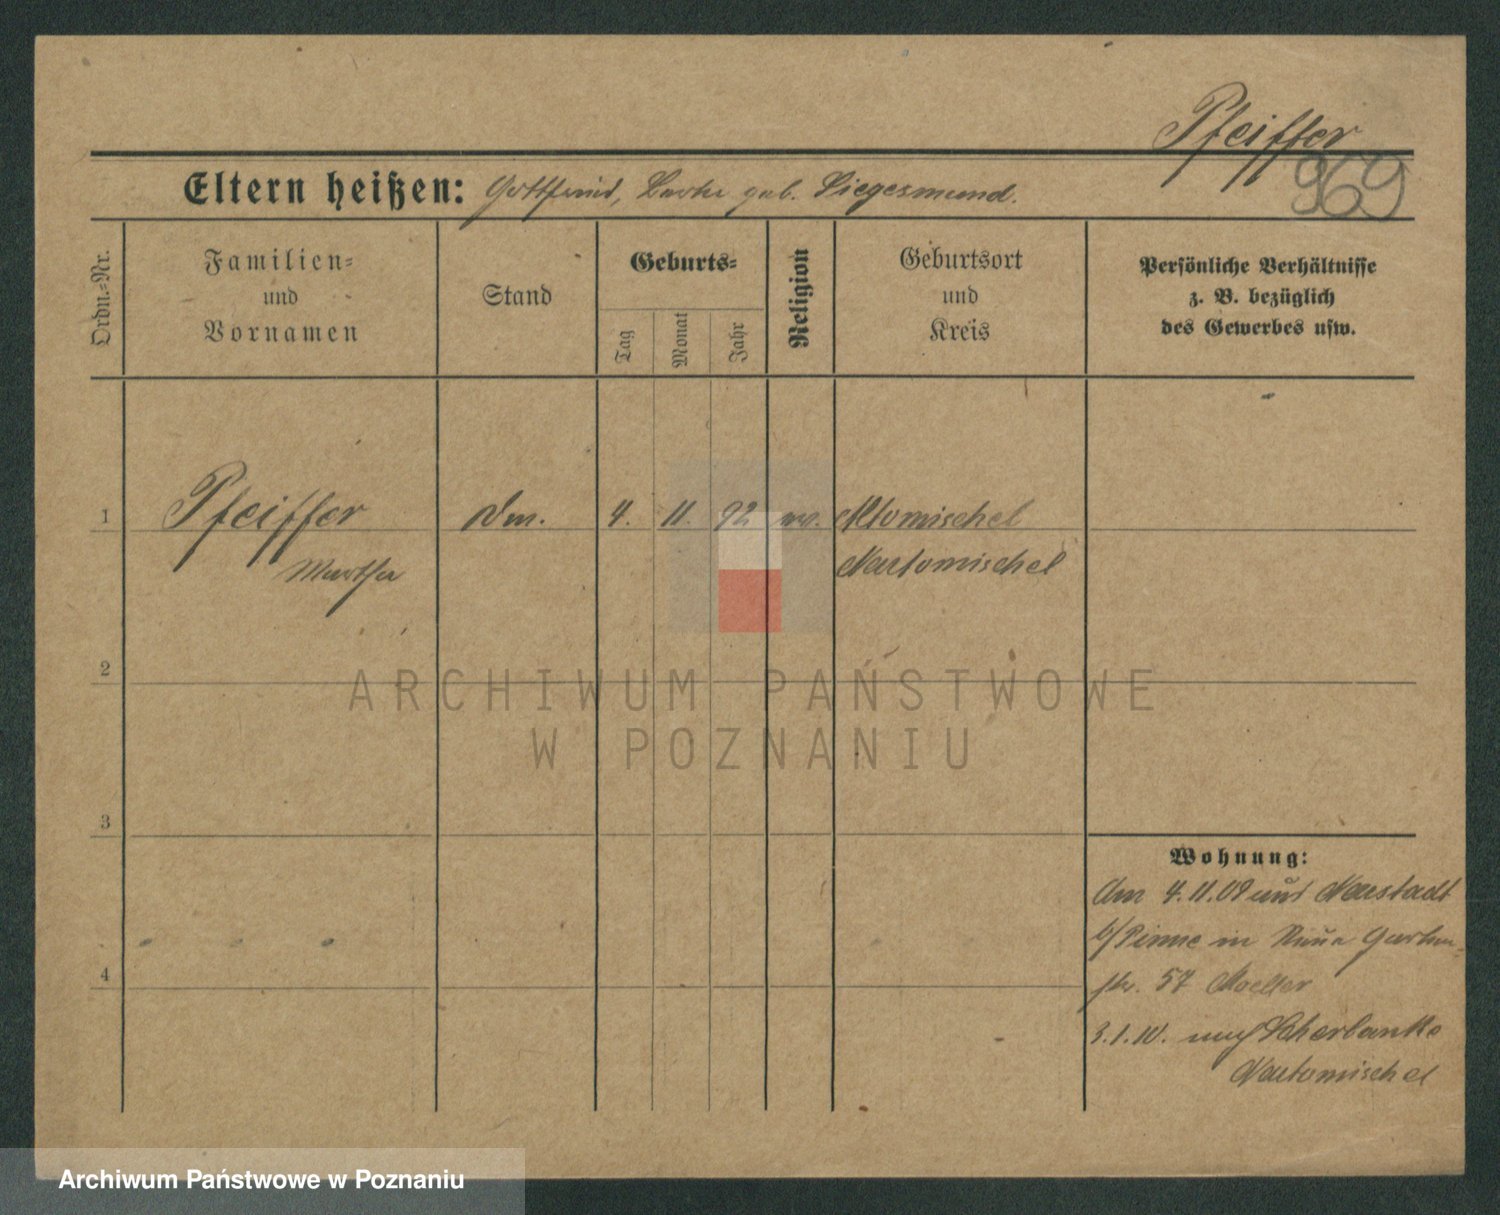 Pfeiffer
969
Eltern heißen: Gottfried, geb. Siegesmund.
Ordn.-Nr.
Familien-
und
Vornamen
Stand
Geburts-
Tag
Monat
Jahr
Religion
Geburtsort
und
Kreis
Persönliche Verhältnisse
z. B. bezüglich
des Gewerbes usw.
1 Pfeiffer 4. 11. 92 ev.
Martha Neutomischel
2
3
4
Wohnung:
Am 4.11.09 aus Neustadt
b/Pinne in Garten-
str. 57
3.1.10. nach Scherlanke
Neutomischel
ARCHIWUM PAŃSTWOWE
W POZNANIU
Archiwum Państwowe w Poznaniu